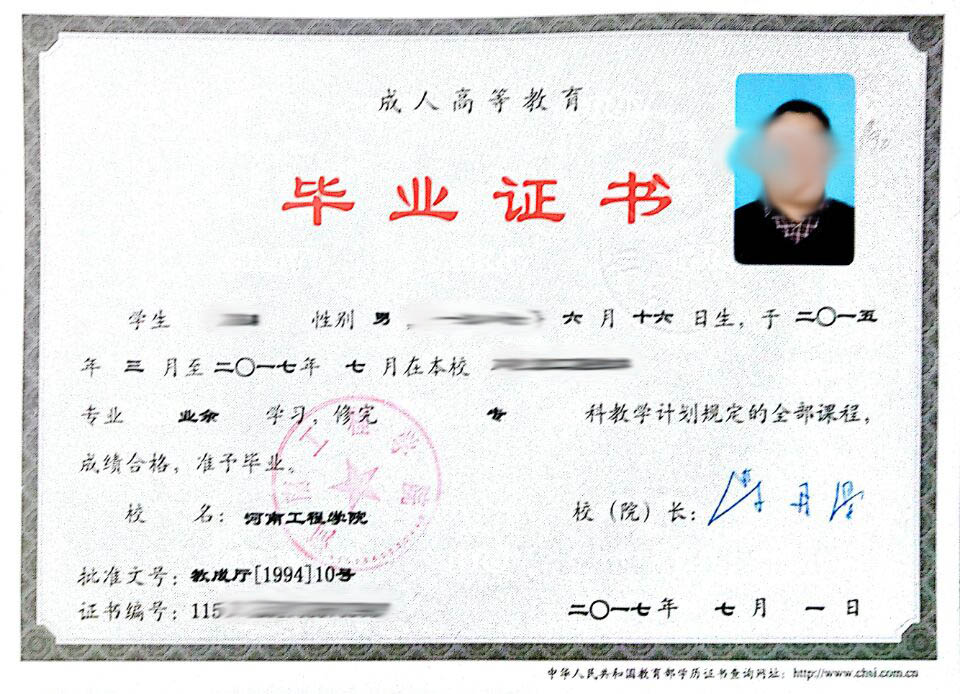 成人高等教育
毕业证书
学生 性别 男 , 六 月 十六 日生，于 二〇一五
年 三 月至 二〇一七年 七 月在本校
专业 业余 学习，修完 专 科教学计划规定的全部课程，
成绩合格，准予毕业。
校 名：河南工程学院
校（院）长：
批准文号：教成厅[1994]10号
证书编号：115
二〇一七年 七月 一日
中华人民共和国教育部学历证书查询网址：http://www.chsi.com.cn